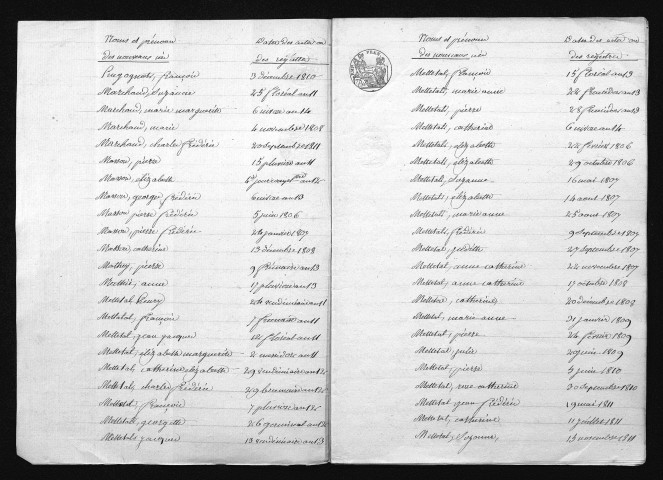 Noms et prénom Dates des actes ou
des nouveaux né des registres
Peugeognots, françois 3 décembre 1810
Marchand, Suzanne 25 floréal an 11
Marchand, marie marguerite 6 nivose an 14
Marchand, marie 4 novembre 1808
Marchand, charles frédéric 20 septembre 1811
Masson, pierre 15 pluviose an 11
Masson, elizabeth
Masson, george frédéric 6 nivose an 13
Masson pierre frédéric 5 juin 1806
Masson, pierre frédéric 24 janvier 1807
Masson, catherine 13 décembre 1808
Mathey, pierre 9 frimaire an 13
Mathié, anne 17 pluviose an 13
Mettetal henry 24 vendémiaire an 11
Mettetal, françois 7 frimaire an 11
Mettetal, jean jacques 12 floréal an 11
Mettetal, elizabeth marguerite 2 messidor an 11
Mettetal, catherine elizabeth 29 vendémiaire an 12
Mettetal, charles frédéric 29 brumaire an 12
Mettetal, françois 7 pluviose an 12
Mettetal, georgette 26 germinal an 12
Mettetal, jacques 13 vendémiaire an 13
Noms et prénom Dates des actes ou
des nouveaux né des registres
Mettetal, françois 15 floréal an 13
Mettetal, marie anne 22 fructidor an 13
Mettetal, pierre 28 fructidor an 13
Mettetal, catherine 6 nivose an 14
Mettetal, elizabeth 22 février 1806
Mettetal, elizabeth 29 octobre 1806
Mettetal, Suzanne 16 mai 1807
Mettetal, elizabeth 14 aout 1807
Mettetal, marie anne 25 aout 1807
Mettetal, frédéric 9 septembre 1807
Mettetal, judith 27 septembre 1807
Mettetal, anne catherine 22 novembre 1807
Mettetal, anne catherine 17 octobre 1808
Mettetal, catherine 20 décembre 1808
Mettetal, marie anne 31 janvier 1809
Mettetal, pierre 24 février 1809
Mettetal, 20 juin 1809
Mettetal, pierre 5 juin 1810
Mettetal, catherine 30 septembre 1810
Mettetal, jean frédéric 19 mai 1811
Mettetal, catherine 11 juillet 1811
Mettetal, Suzanne, 13 novembre 1811